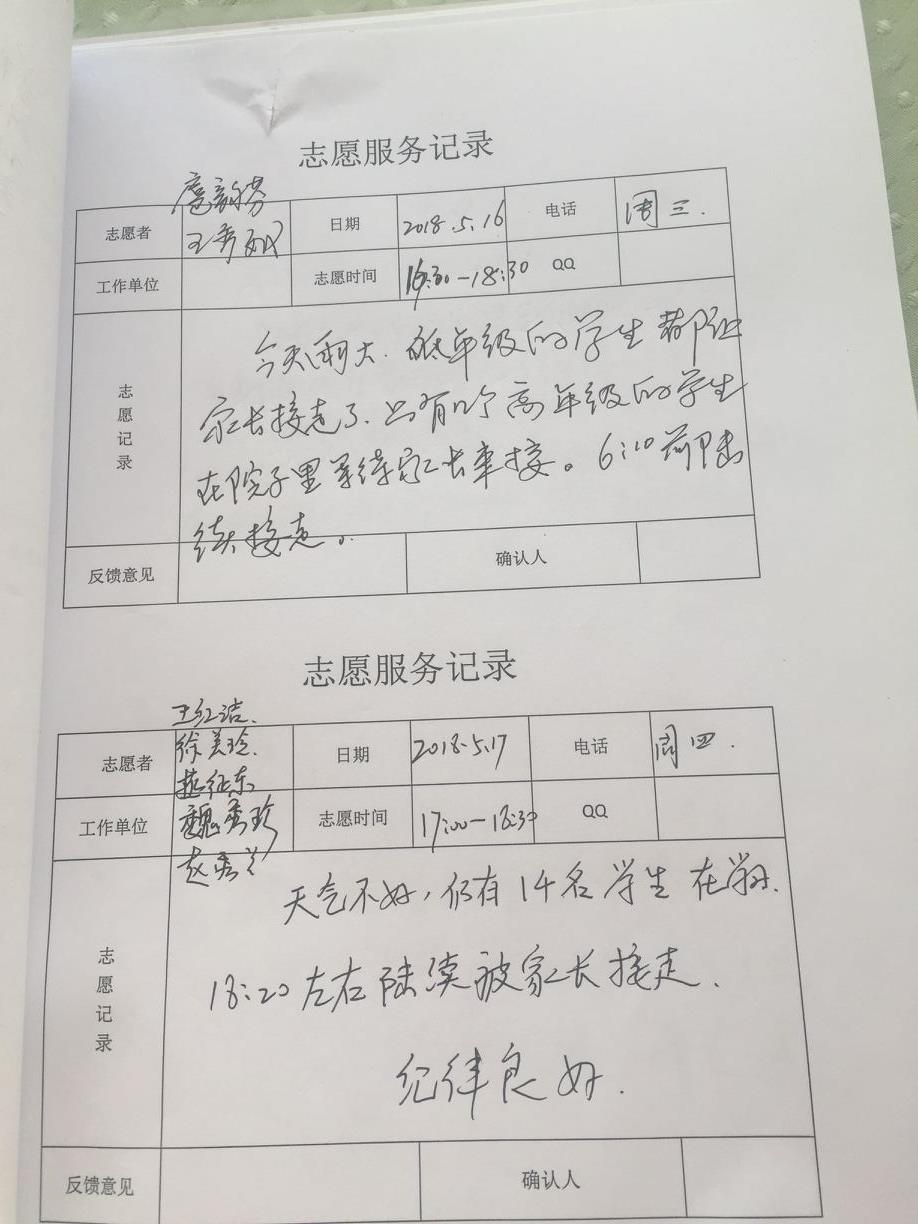 志愿服务记录
志愿者 王秀 日期 2018.5.16 电话 周三.
工作单位 志愿时间 16:30-18:30 QQ
志愿记录
今天雨大.低年级的学生都让
家长接走了.只有几个高年级的学生
在院子里等待家长来接。6:10前陆
续接走。
反馈意见 确认人
志愿服务记录
王红洁.
志愿者 徐美玲. 日期 2018.5.17 电话 周四.
征东
工作单位 魏秀珍 志愿时间 17:00-18:30 QQ
赵秀兰
志愿记录
天气不好,仍有14名学生在学习.
18:20左右陆续被家长接走.
纪律良好.
反馈意见 确认人